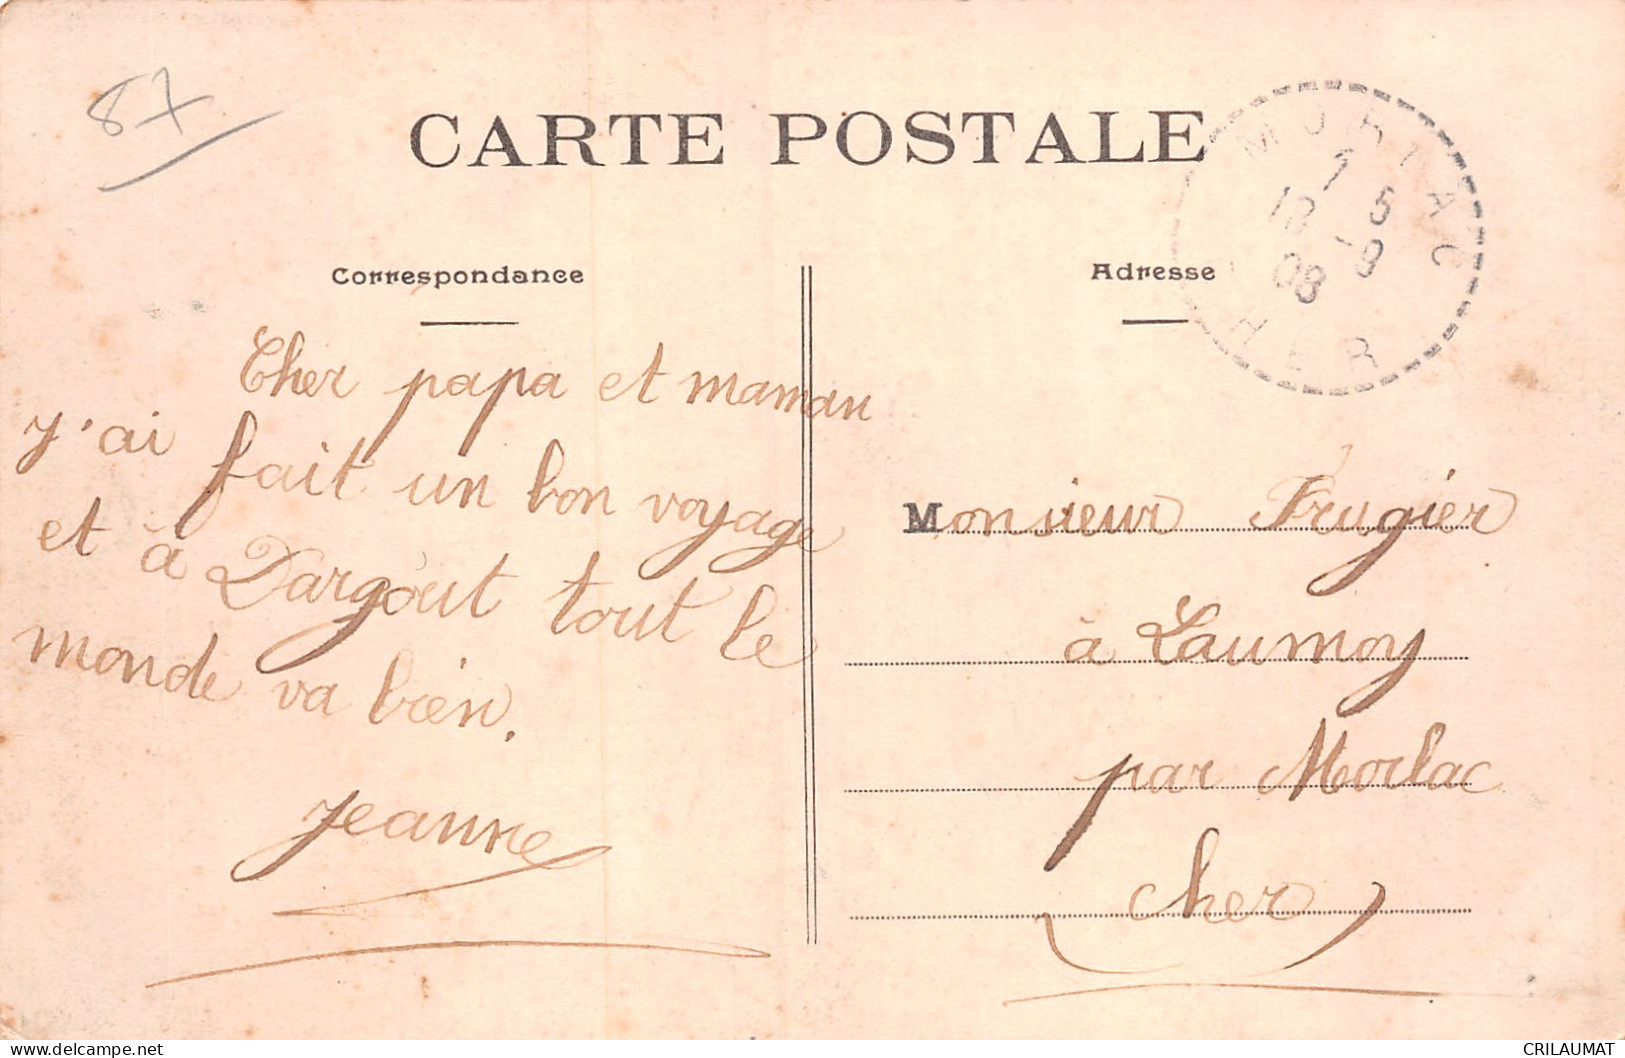 87
CARTE POSTALE
MORLAC
7 5
18 -9
08
CHER
Correspondance
Adresse
Cher papa et maman
j'ai fait un bon voyage
et à Dargout tout le
monde va bien.
Jeanne
Monsieur Frugier
à Laumoy
par Morlac
(Cher)
CRILAUMAT